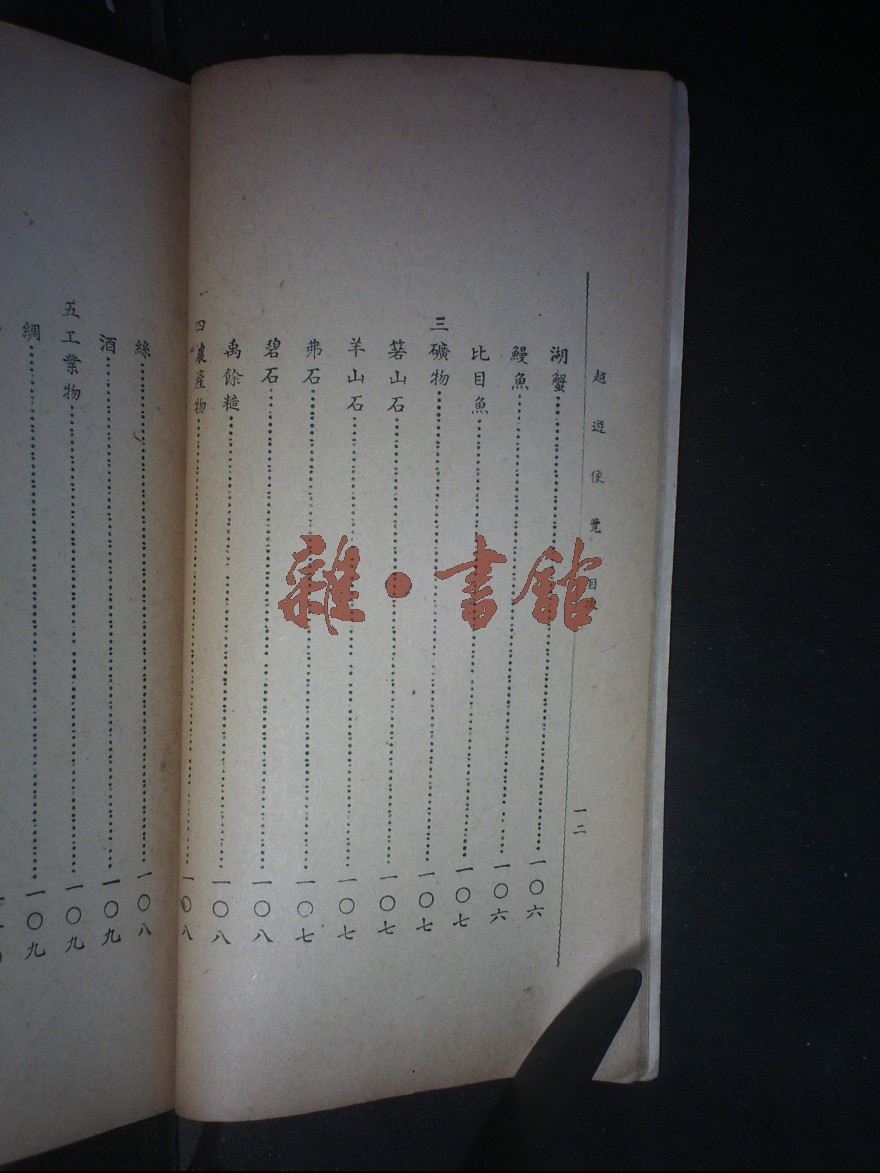 越遊便覽 目次
一二
湖蟹 一〇六
鰻魚 一〇六
比目魚 一〇七
三礦物 一〇七
箬山石 一〇七
羊山石 一〇七
弗石 一〇七
碧石 一〇八
禹餘糧 一〇八
四農產物 一〇八
絲 一〇八
酒 一〇九
五工業物 一〇九
綢 一〇九
雜·書館